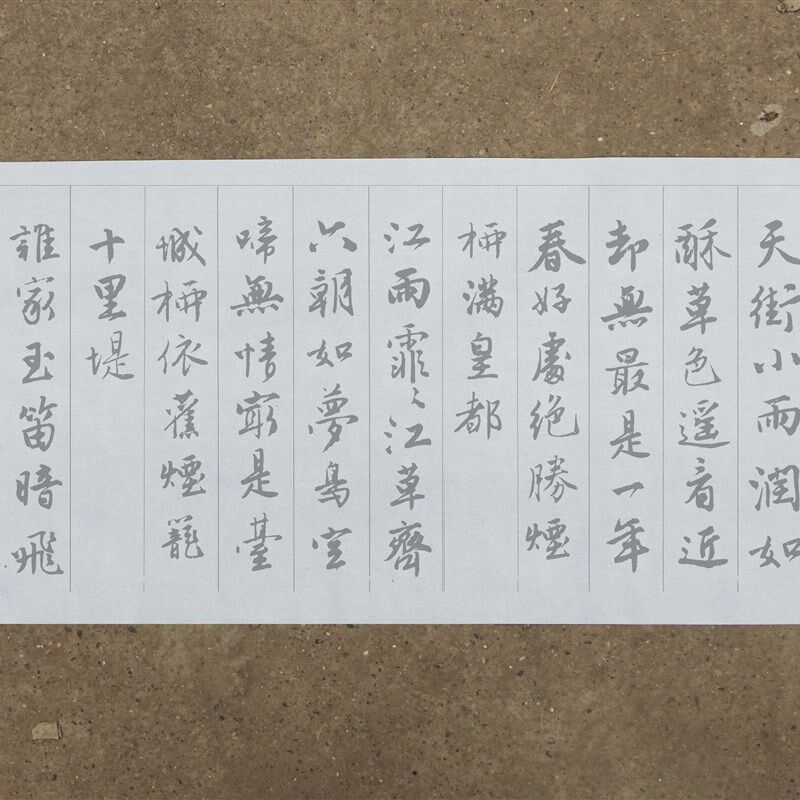 天街小雨潤如
酥草色遥看近
却無最是一年
春好處絶勝煙
柳滿皇都
江雨霏〻江草齊
六朝如夢鳥空
啼無情㝡是臺
城柳依舊煙籠
十里堤
誰家玉笛暗飛